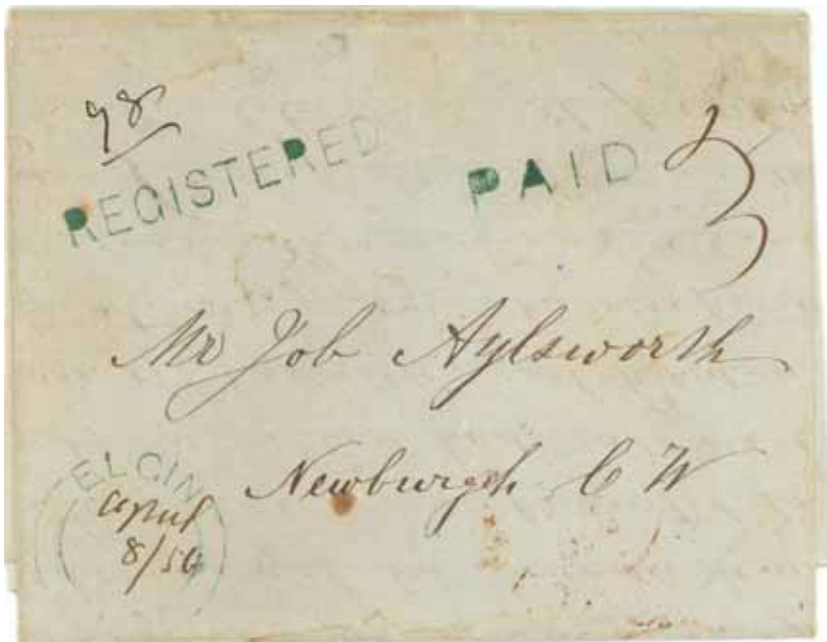 98
REGISTERED
PAID 3
Mr Job Aylsworth
Newburgh C W
ELGIN
April
8/56